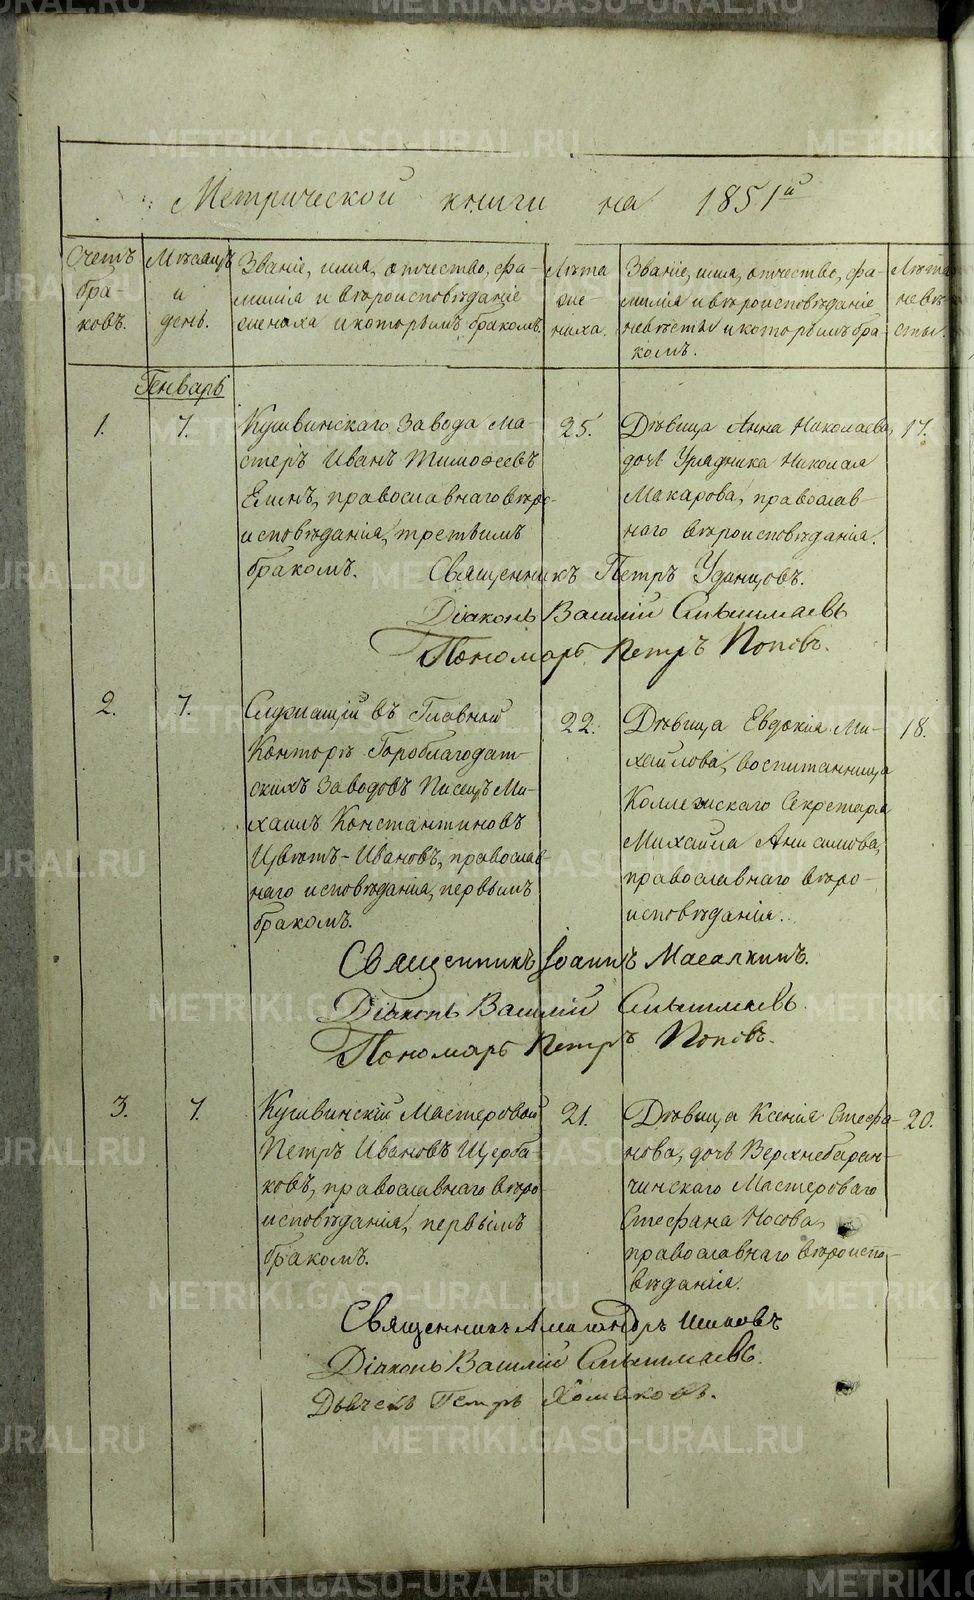 Метрической книги на 1851й
Счетъ бра- ковъ.
Мѣсяцъ и день.
Званіе, имя, отчество, фа-
милія и вѣроисповѣданіе
жениха и которымъ бракомъ.
Лѣта же- ниха.
Званіе, имя, отчество, фа-
милія и вѣроисповѣданіе
невѣсты и которымъ бра-
комъ.
Лѣта невѣ- сты.
Генварь
1.
7.
Кушвинскаго Завода Ма-
стеръ Иванъ Тимоѳеевъ
православнаго вѣро-
исповѣданія, третьимъ
бракомъ.
25.
Дѣвица Анна Николаева,
дочь Урядника Николая
Макарова, православ-
наго вѣроисповѣданія.
17.
Священникъ Петръ Удинцовъ.
Діаконъ Василій
Пономарь Петръ Поповъ.
2.
7.
Служащій въ Главной
Конторѣ Гороблагодат-
скихъ Заводовъ Писецъ Ми-
хаилъ Константиновъ
Цвѣтъ-Ивановъ, православ-
наго исповѣданія, первымъ
бракомъ.
22.
Дѣвица Евдокія Ми-
хайлова, воспитанница
Коллежскаго Секретаря
Михаила Анисимова,
православнаго вѣро-
исповѣданія.
18.
Священникъ Іоаннъ Масалкинъ.
Діаконъ Василій
Пономарь Петръ Поповъ.
3.
7.
Кушвинскій Мастеровой
Петръ Ивановъ Щерба-
ковъ, православнаго вѣро-
исповѣданія, первымъ
бракомъ.
21.
Дѣвица Ксенія Стефа-
нова, дочь Верхнебаран-
чинскаго Мастероваго
Стефана Носова,
православнаго вѣроиспо-
вѣданія.
20.
Священникъ Александръ Шишовъ
Діаконъ Василій
Дьячекъ Петръ Хомяковъ.
METRIKI.GASO-URAL.RU